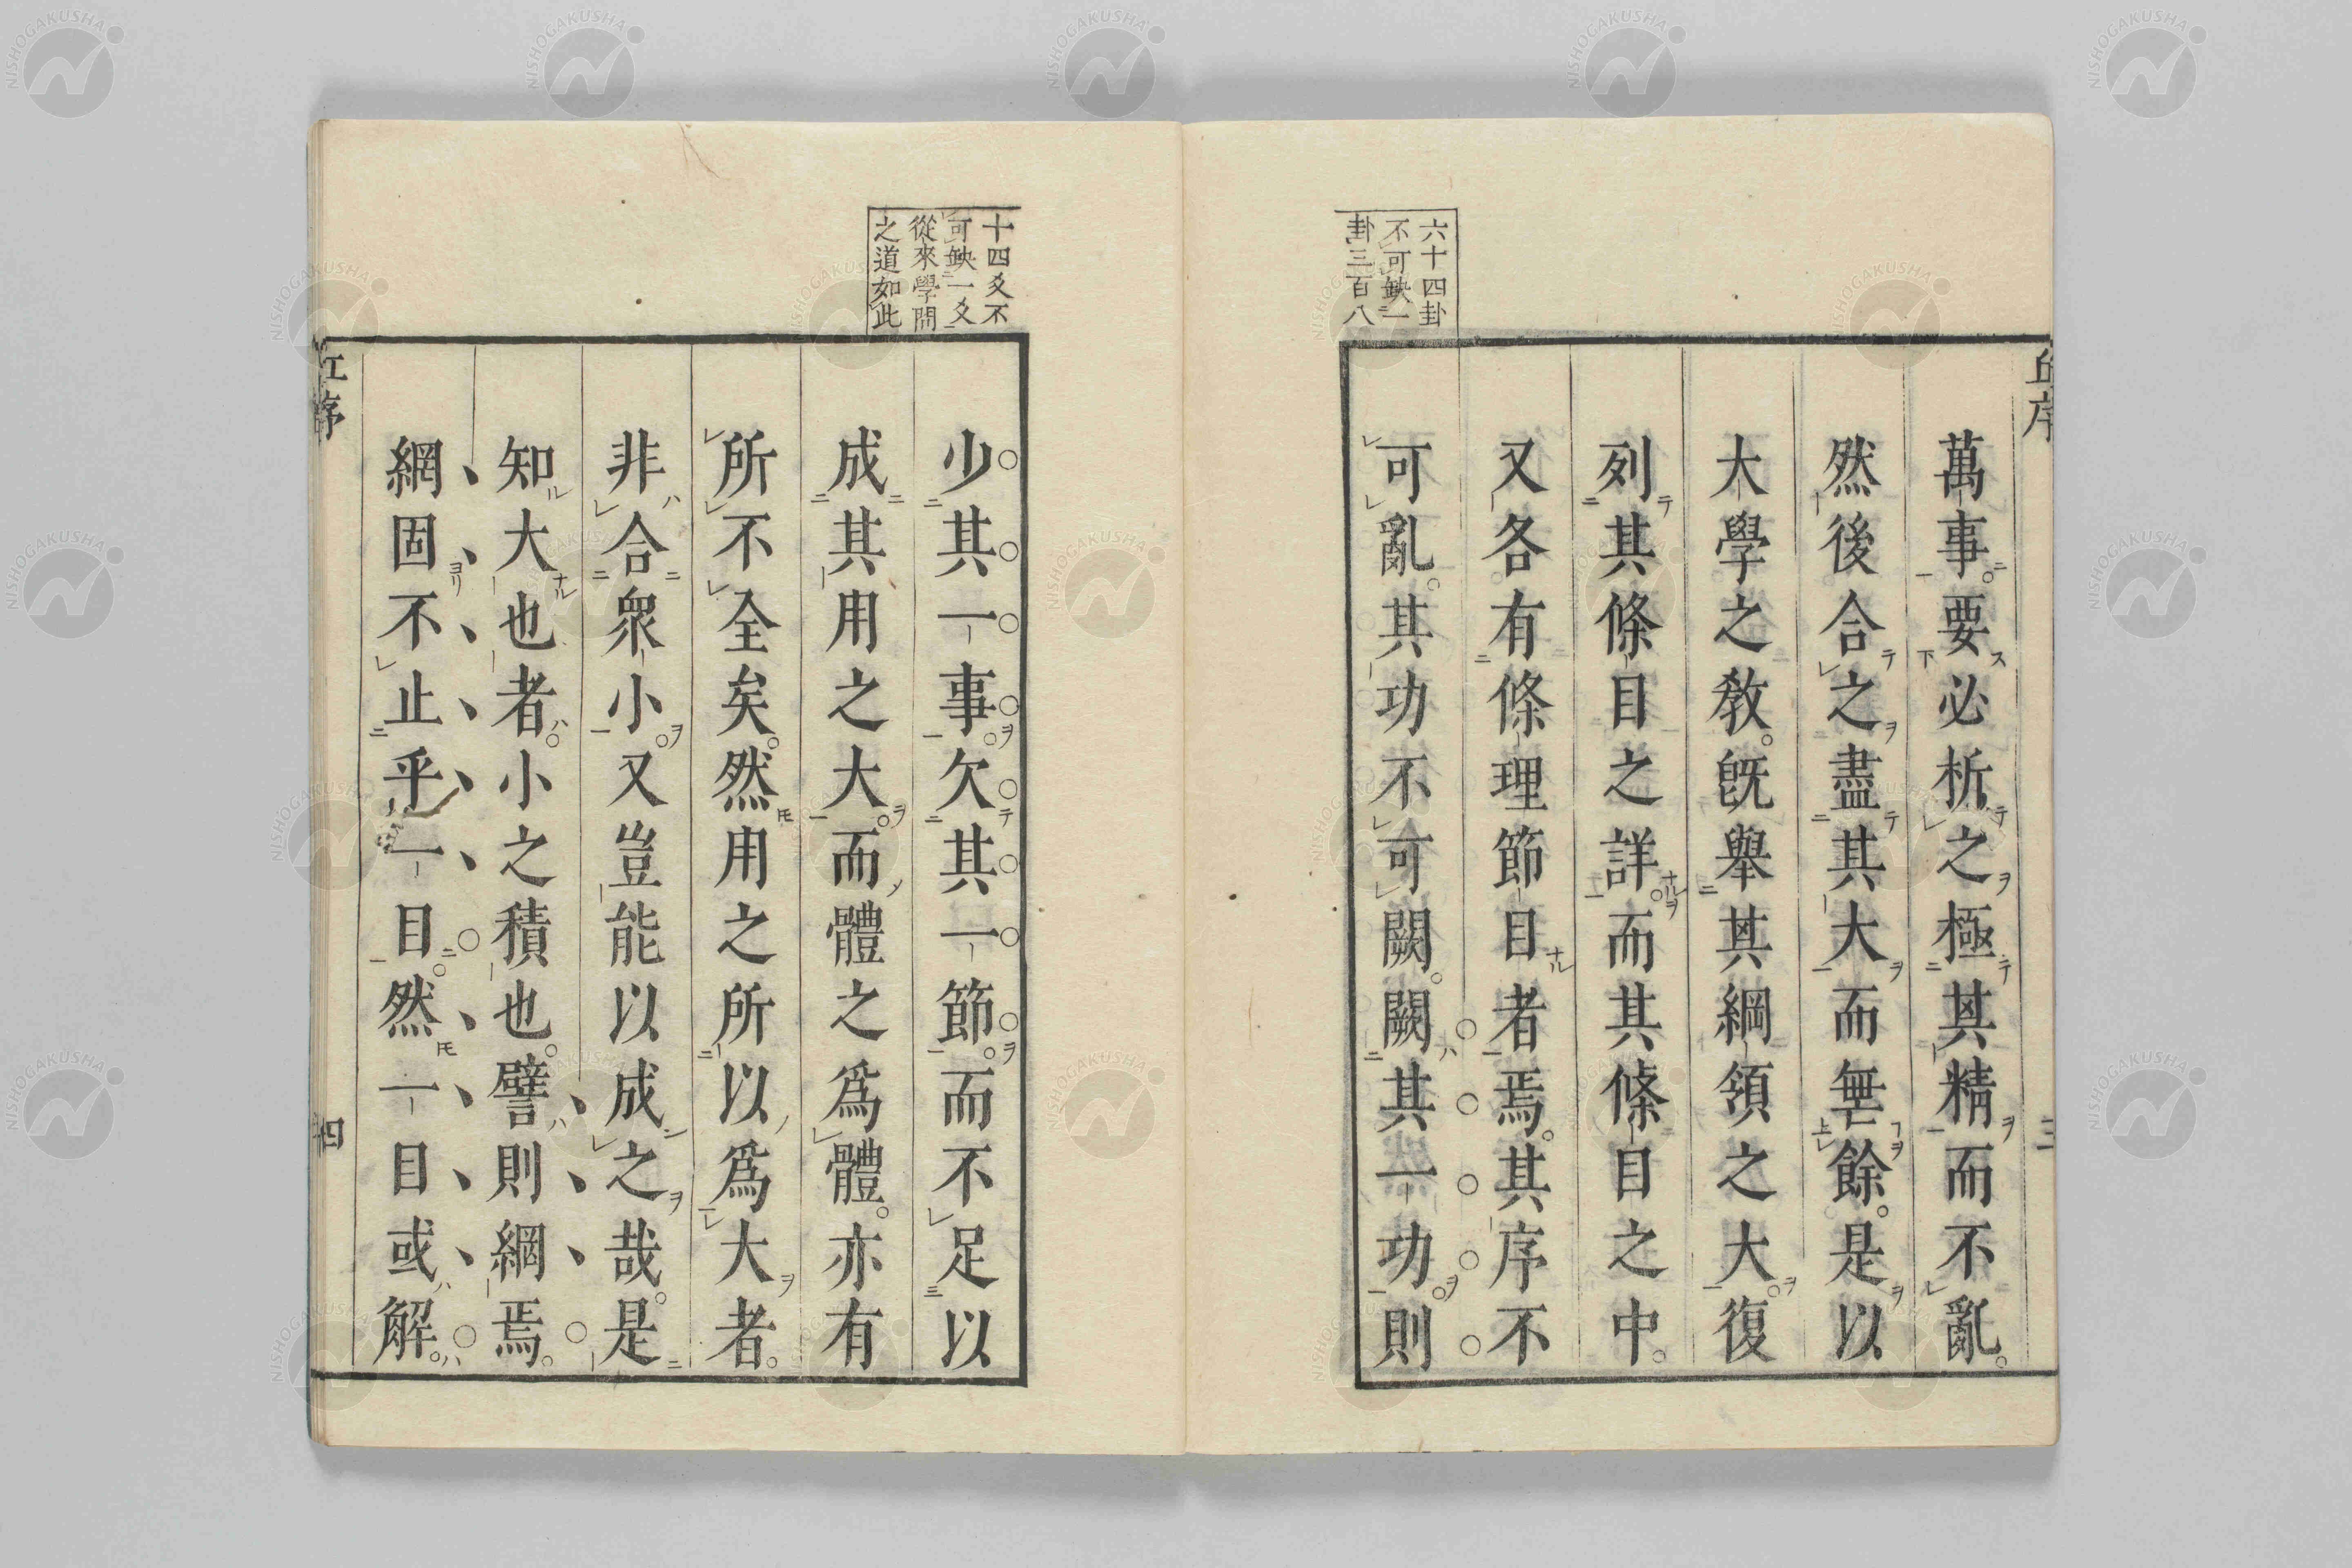 六十四卦
不可缺一
卦三百八
丘序
三
萬事要必析之極其精而不亂
然後合之盡其大而無餘是以
大學之教旣舉其綱領之大復
列其條目之詳而其條目之中
又各有條理節目者焉其序不
可亂其功不可闕闕其一功則
十四爻不
可缺一爻
從來學問
之道如此
少其一事欠其一節而不足以
成其用之大而體之爲體亦有
所不全矣然用之所以爲大者
非合衆小又豈能以成之哉是
知大也者小之積也譬則網焉
網固不止乎一目然一目或解
丘序
四
NISHOGAKUSHA